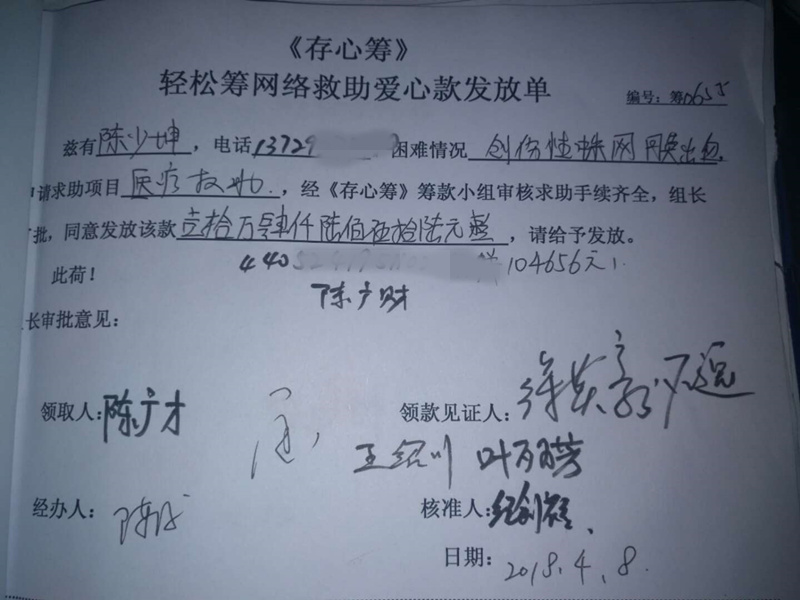 《存心筹》
轻松筹网络救助爱心款发放单
编号：筹0655
兹有陈少坤，电话13729 困难情况 创伤性蛛网膜出血
申请求助项目医疗救助，经《存心筹》筹款小组审核求助手续齐全，组长
批，同意发放该款壹拾万肆仟陆佰伍拾陆元整，请给予发放。
此荷！ 440 104656元
陈广财
长审批意见：
领取人：陈广才 领款见证人：
王绍川 叶百芳
经办人： 核准人：
日期：2018.4.8.